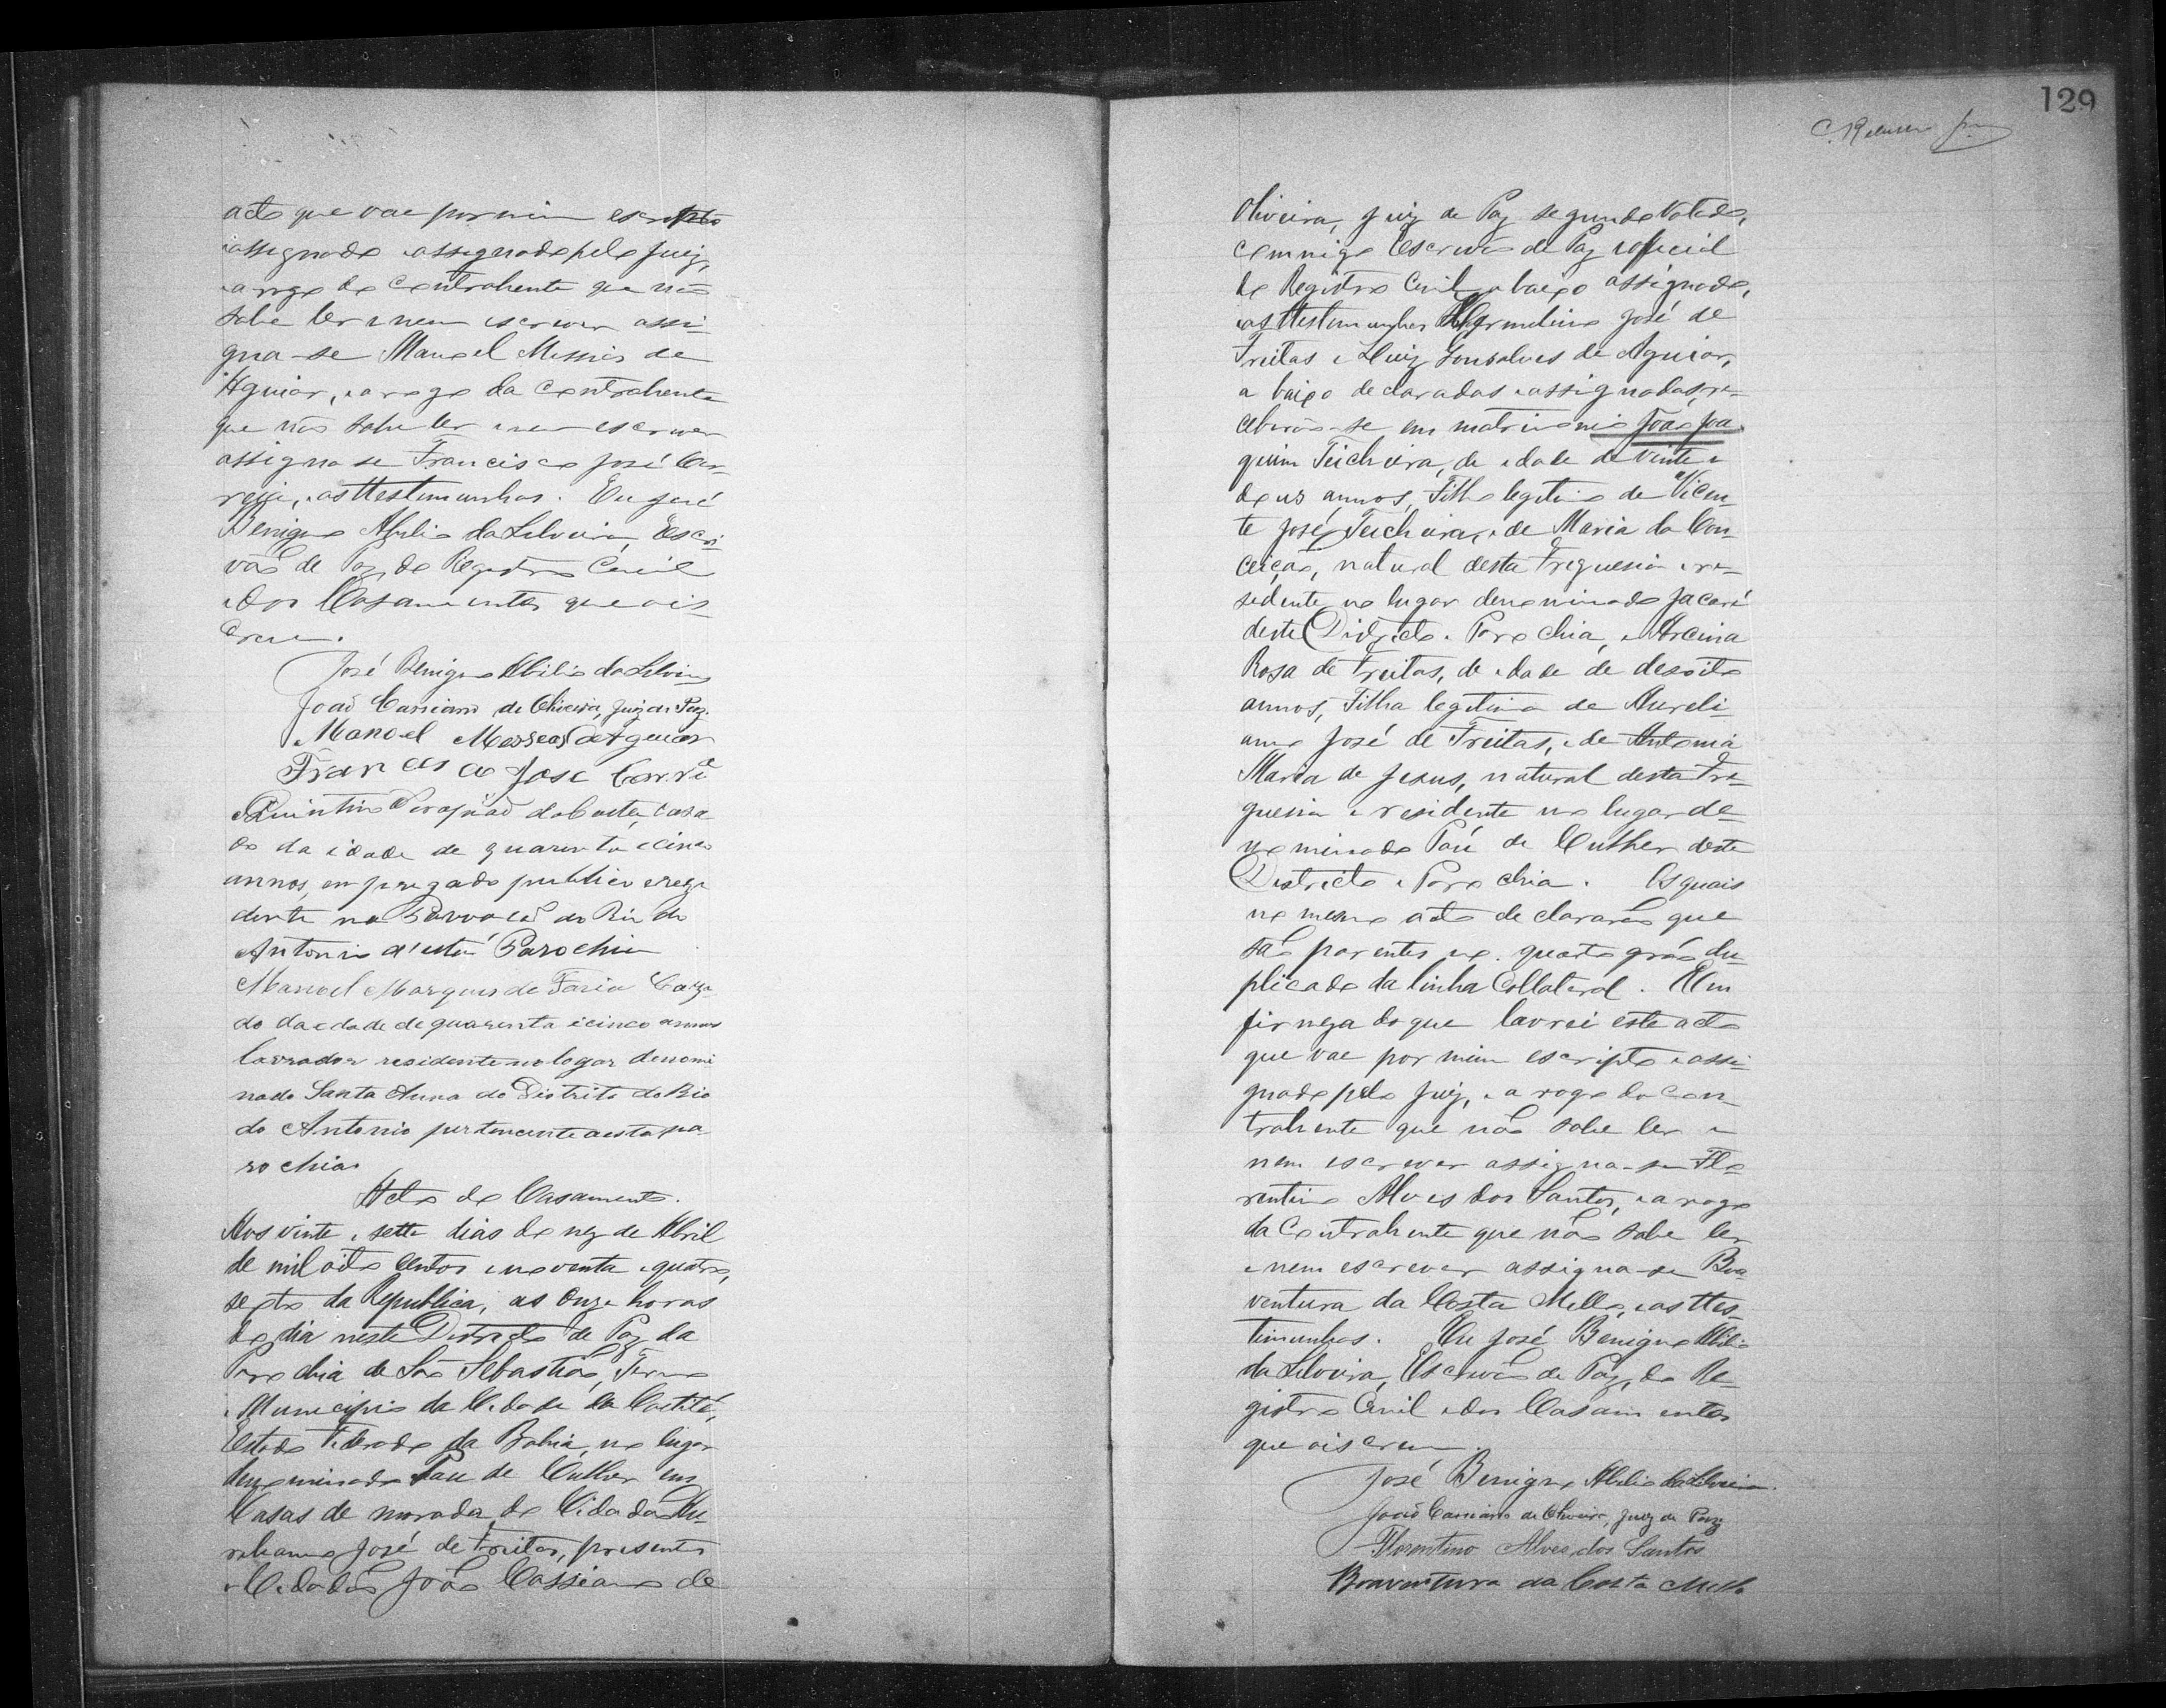 acto que vae por mim escripto
assignado assignado pelo Juiz,
a rogo do Contrahente que não
sabe ler e nem escrever assi-
gna-se Manoel Messias de
Aguiar, e a rogo da Contrahente
que não sabe ler e nem escrever
assigna se Francisco José Cor-
reia, e as ttestemunhas. Eu José
Benigno Abilio da Silveira, Escri-
vão de Paz, do Registro Civil
e dos Casamentos que ois
crevi.
José Benigno Abilio da Silveira
João Cassiano de Oliveira, Juiz de Paz.
Manoel Messias de Aguiar
Francisco Jose Corrê
Quintino da Costa, casa
do da idade de quarenta e cinco
annos, empregado publico e rezi
dente na Povoação do Rio do
Antonio d'esta Parochia
Manoel Marques de Faria Caza
do da edade de quarenta e cinco annos
lavrador residente no logar denomi
nado Santa Anna do Distrito do Rio
do Antonio pertencente a esta pa-
rochia
Acto de Casamento.
Aos vinte e sette dias do mez de Abril
de mil oito centos e noventa e quatro,
sexto da Republica, as Onze horas
do dia neste Districto de Paz da
Parochia de São Sebastião, Termo
e Municipio da Cidade de Caetité,
Estado Federado da Bahia, no lugar
denominado Pau de Culher em
Casas de morada do Cidadão Au-
reliano José de Freitas, presente
o Cidadão João Cassiano de
129
Oliveira, Juiz de Paz segundo Votado,
commigo Escrivão de Paz e oficial
do Registro Civil abaixo assignado,
e as ttestemunhas Hermelino José de
Freitas e Luiz Gonsalves de Aguiar,
a baixo declaradas e assignadas, re-
ceberão-se em matrimonio João Joa-
quim Teicheira, de edade de Vinte e
deus annos, Filho legitimo de Vicen-
te José Teicheira, e de Maria da Con-
ceição, natural desta Freguesia e re-
sidente no lugar denominado Jacaré
deste Districto e Parochia, e Arcina
Rosa de Freitas, de edade de desoito
annos, Filha legitima de Aureli-
ano José de Freitas, e de Antonia
Maria de Jesus, natural desta Fre-
guesia e residente no lugar de-
nominado Pau de Culher deste
Districto e Parochia. Os quais
no mesmo acto declararão que
são parentes no quarto gráo du-
plicado da linha Collateral. Em
firmeza do que lavrei este acto
que vae por mim escripto e assi-
gnado pelo Juiz, e a rogo do Con-
trahente que não sabe ler e
nem escrever assigna-se Flo-
rentino Alves dos Santos, e a rogo
da Contrahente que não sabe ler
e nem escrever assigna-se Boa
ventura da Costa Mello, e as ttes
timunhas. Eu José Benigno Abilio
da Silveira, Escrivão de Paz, do Re-
gistro Civil e dos Casamentos
que oiscrevi.
José Benigno Abilio da Silveira.
João Cassiano de Oliveira, Juiz de Paz
Florentino Alves dos Santos
Boaventura da Costa Mello